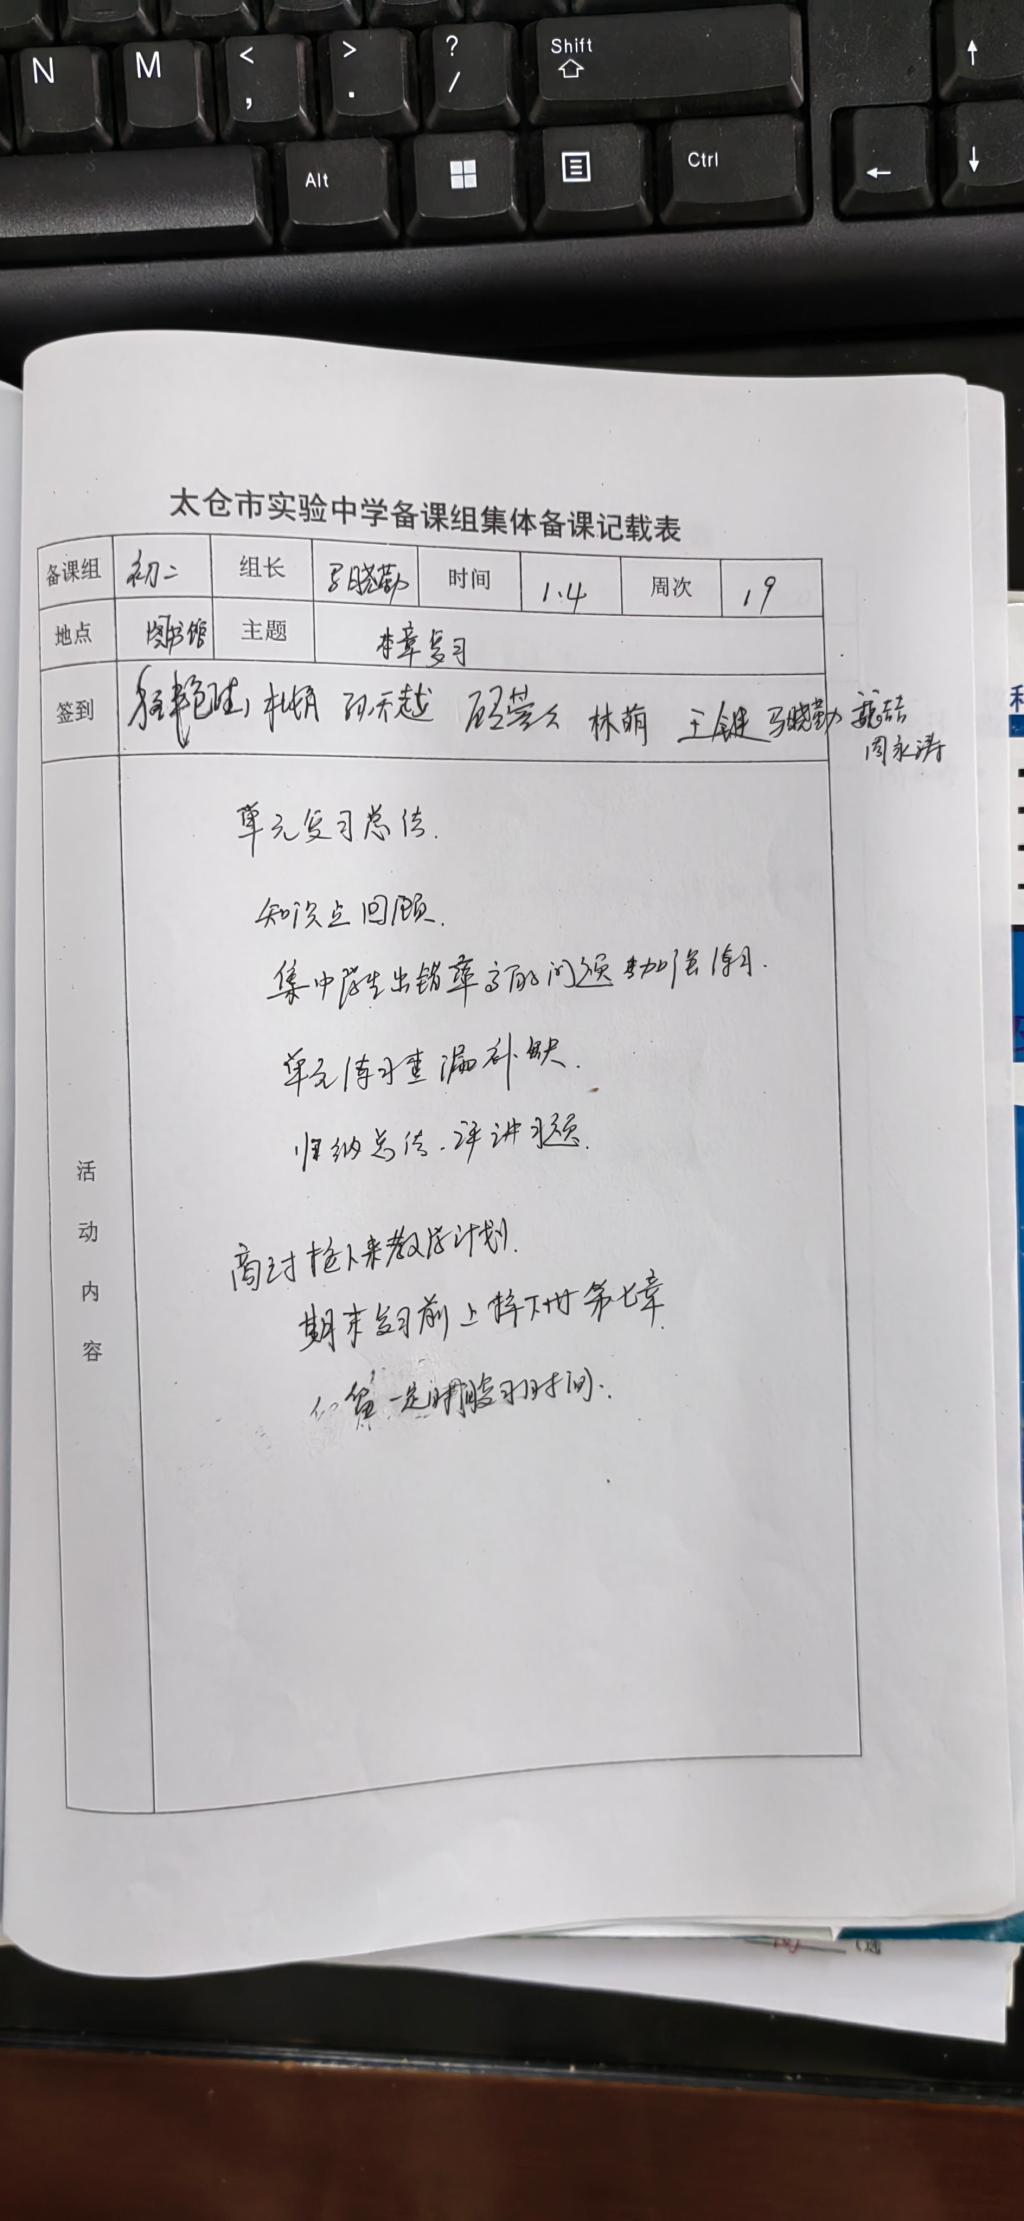 N M < , > . ? / Shift ↑
Alt Ctrl ← ↓
太仓市实验中学备课组集体备课记载表
备课组 初二 组长 马晓勤 时间 1.4 周次 19
地点 图书馆 主题 本章复习
签到 杜娟 孙天越 林萌 王健 马晓勤 魏喆
周永涛
单元复习总结.
知识点回顾.
集中学生出错率高的问题 加强练习.
单元练习查漏补缺.
归纳总结.评讲习题.
活动内容
商讨接下来教学计划.
期末复习前上掉下册第七章.
一定期末复习时间.